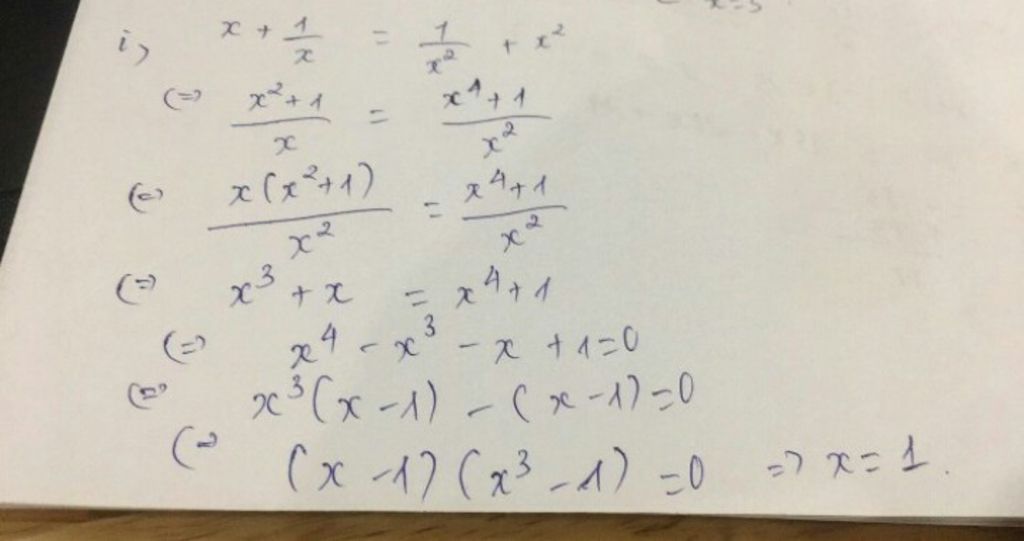 x=3
i, x + 1/x = 1/x² + x²
(=) (x²+1)/x = (x⁴+1)/x²
(=) x(x²+1)/x² = (x⁴+1)/x²
(=) x³ + x = x⁴+1
(=) x⁴ - x³ - x + 1=0
(=) x³(x-1) - (x-1)=0
(=) (x-1)(x³-1) =0 => x=1.